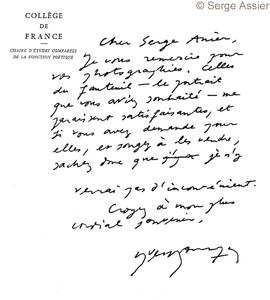 © Serge Assier
COLLÈGE
DE
FRANCE
CHAIRE D'ÉTUDES COMPARÉES
DE LA FONCTION POÉTIQUE
Cher Serge Assier,
Je vous remercie pour
vos photographies. Celles
du fauteuil — le portrait
que vous aviez souhaité — me
paraissent satisfaisantes, et
si vous avez demande pour
elles, et songez à les vendre,
sachez donc que je n'y
verrai pas d'inconvénient.
Croyez à mon plus
cordial souvenir,
Yves Bonnefoy